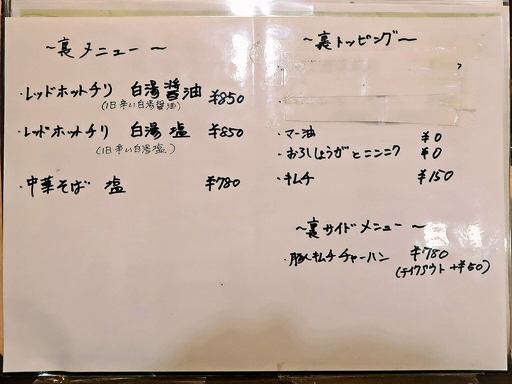 ～裏メニュー～
・レッドホットチリ 白湯醤油 ¥850
(旧辛い白湯醤油)
・レッドホットチリ 白湯塩 ¥850
(旧辛い白湯塩)
・中華そば 塩 ¥780
～裏トッピング～
・マー油 ¥0
・おろしょうがとニンニク ¥0
・キムチ ¥150
～裏サイドメニュー～
・豚キムチチャーハン ¥780
(テイクアウト +¥50)